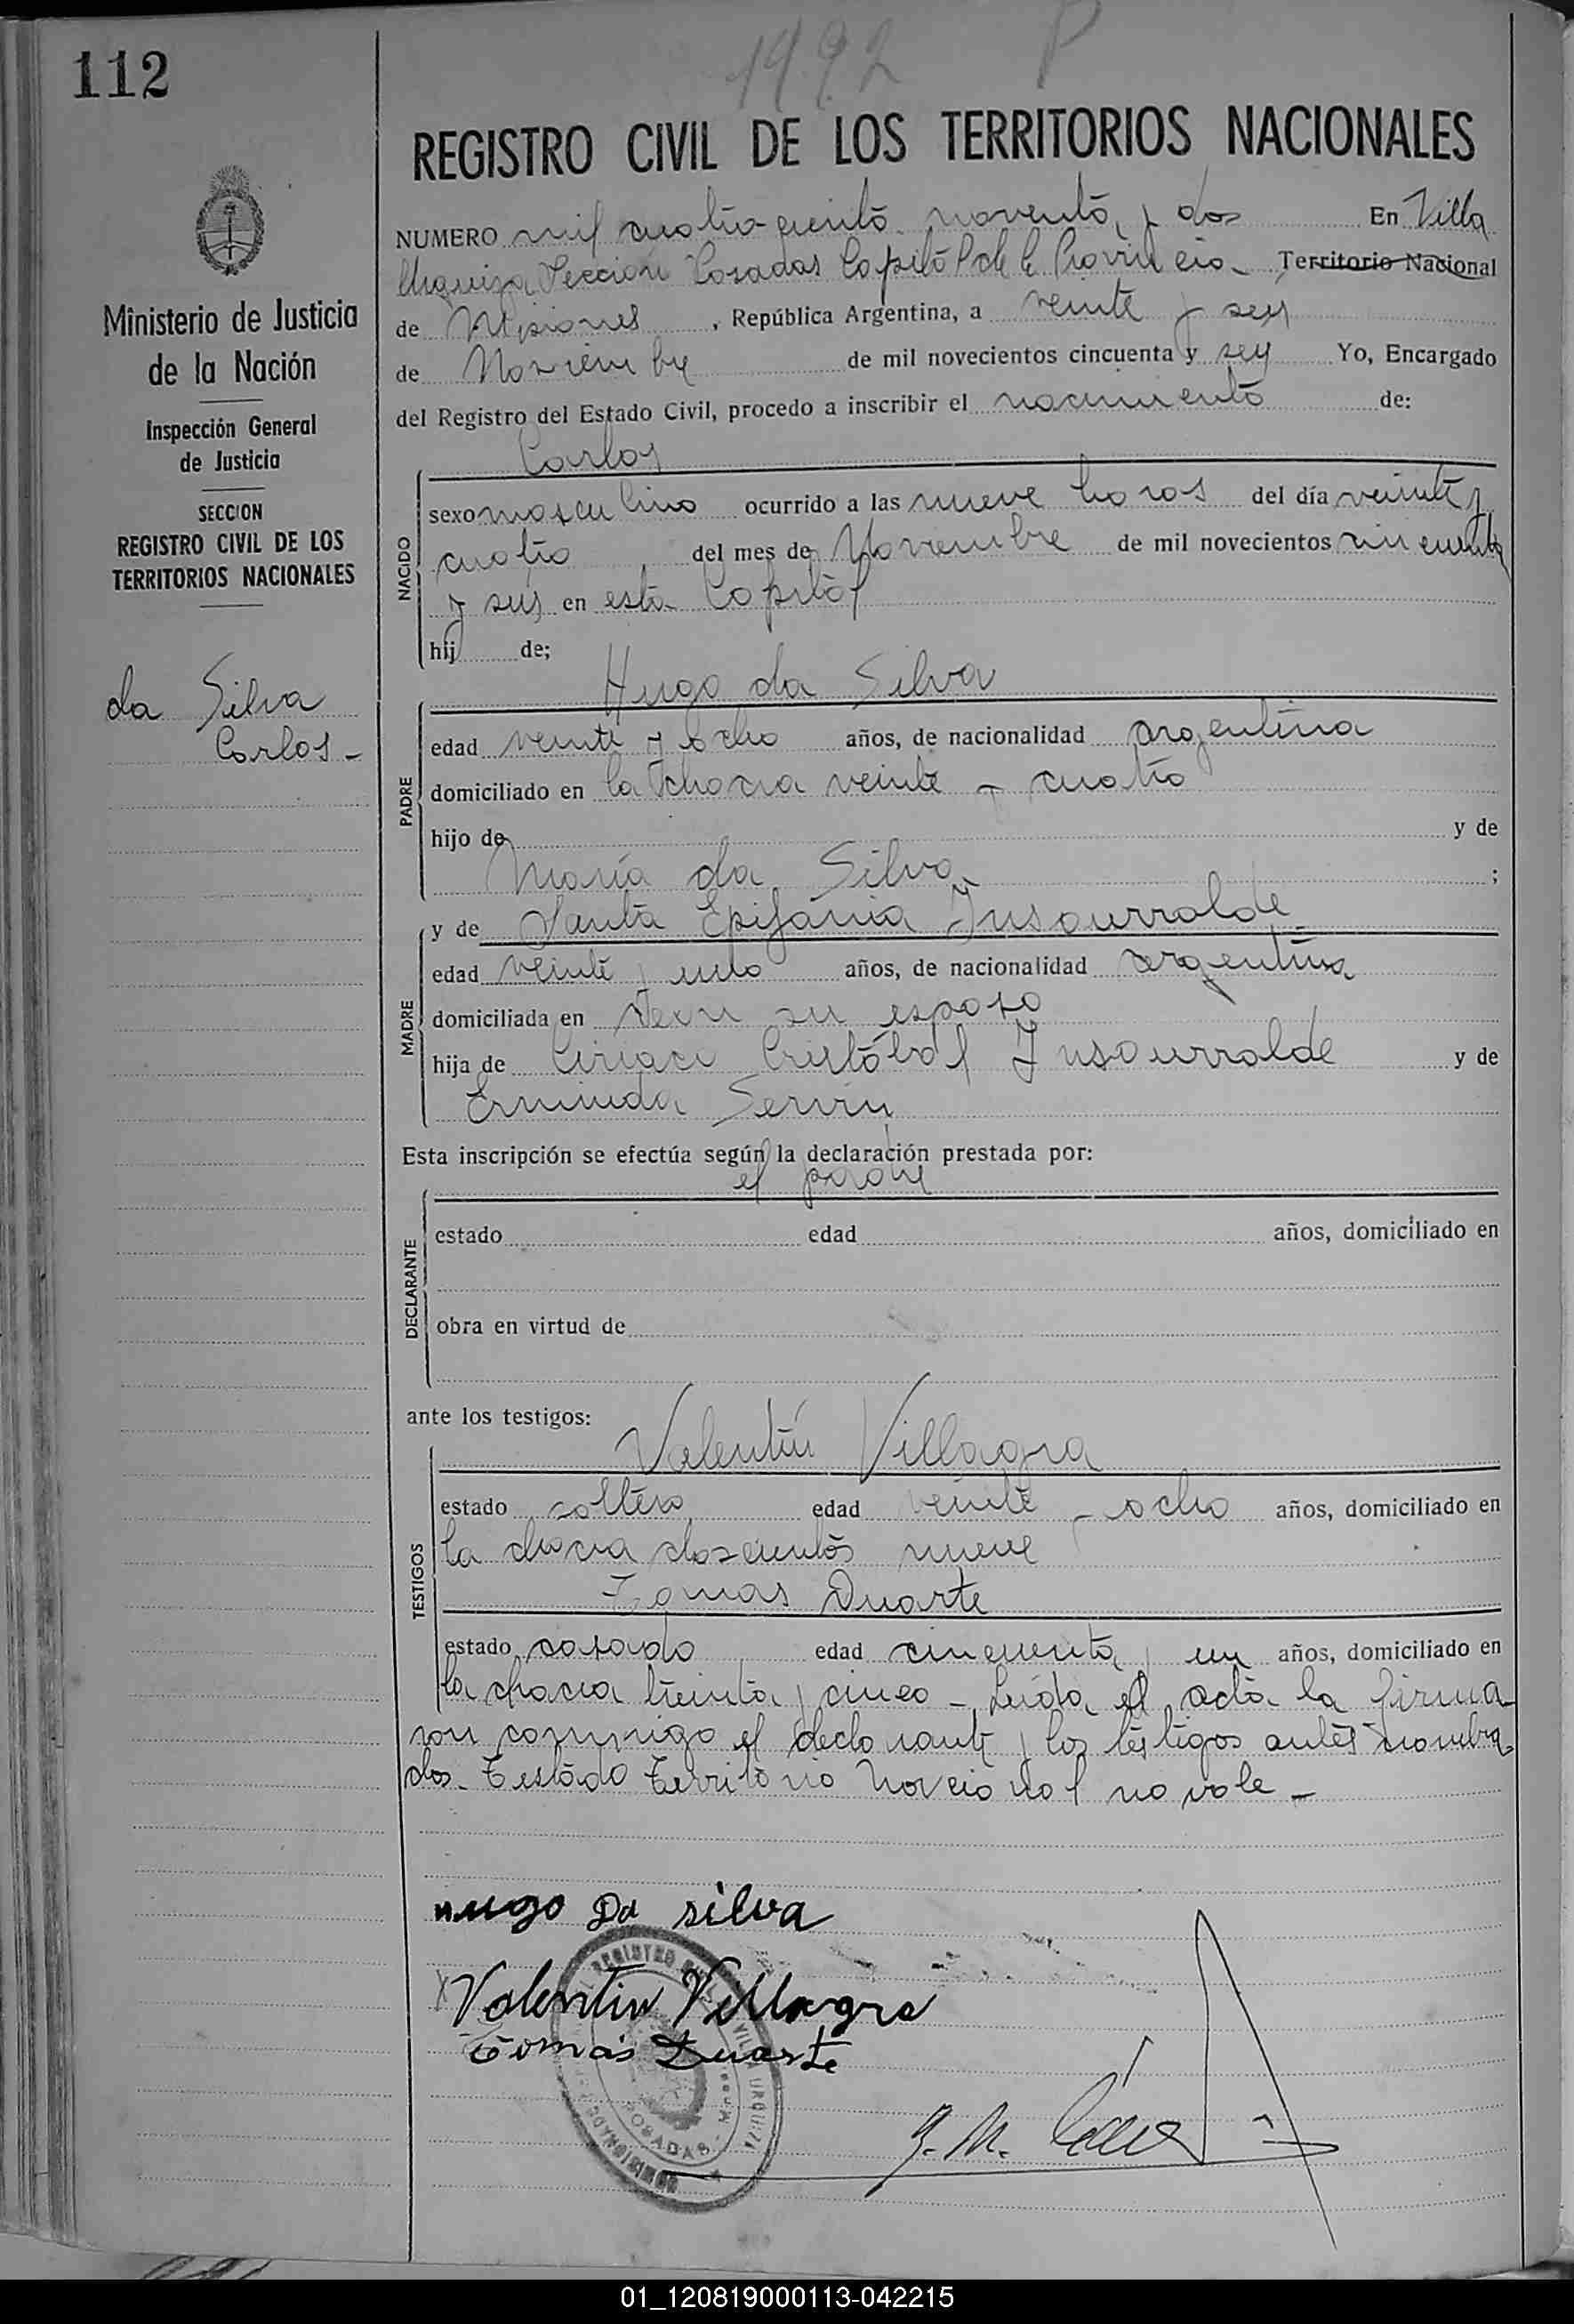 1492 P
112
REGISTRO CIVIL DE LOS TERRITORIOS NACIONALES
Ministerio de Justicia
de la Nación
Inspección General
de Justicia
SECCION
REGISTRO CIVIL DE LOS
TERRITORIOS NACIONALES
da Silva
Carlos -
NUMERO mil cuatrocientos noventa y dos En Villa
Urquiza Sección Posadas Capital de la Provincia - Territorio Nacional
de Misiones, República Argentina, a veinte y seis
de Noviembre de mil novecientos cincuenta y seis Yo, Encargado
del Registro del Estado Civil, procedo a inscribir el nacimiento de:
Carlos
NACIDO
sexo masculino ocurrido a las nueve horas del día veinte y
cuatro del mes de Noviembre de mil novecientos cincuenta
y seis en esta Capital
hij de;
Hugo da Silva
PADRE
edad veinte y ocho años, de nacionalidad argentina
domiciliado en la chacra veinte y cuatro
hijo de y de
María da Silva ;
y de Santa Epifania Insaurralde
MADRE
edad veinte y años, de nacionalidad argentina
domiciliada en su esposo
hija de Ciriaco Cristóbal Insaurralde y de
Erminda Servin
Esta inscripción se efectúa según la declaración prestada por:
el padre
DECLARANTE
estado edad años, domiciliado en
obra en virtud de
ante los testigos:
Valentín Villagra
TESTIGOS
estado soltero edad veinte y ocho años, domiciliado en
la chacra doscientos nueve
Tomas Duarte
estado casado edad cincuenta y un años, domiciliado en
la chacra treinta y cinco - Leída el acta la firma
con conmigo el declarante y los testigos antes nombra
dos - Testado Territorio Nacional no vale -
Hugo Da silva
Valentin Villagra
Tomás Duarte
REGISTRO VILLA URQUIZA
POSADAS - Misiones
01_120819000113-042215